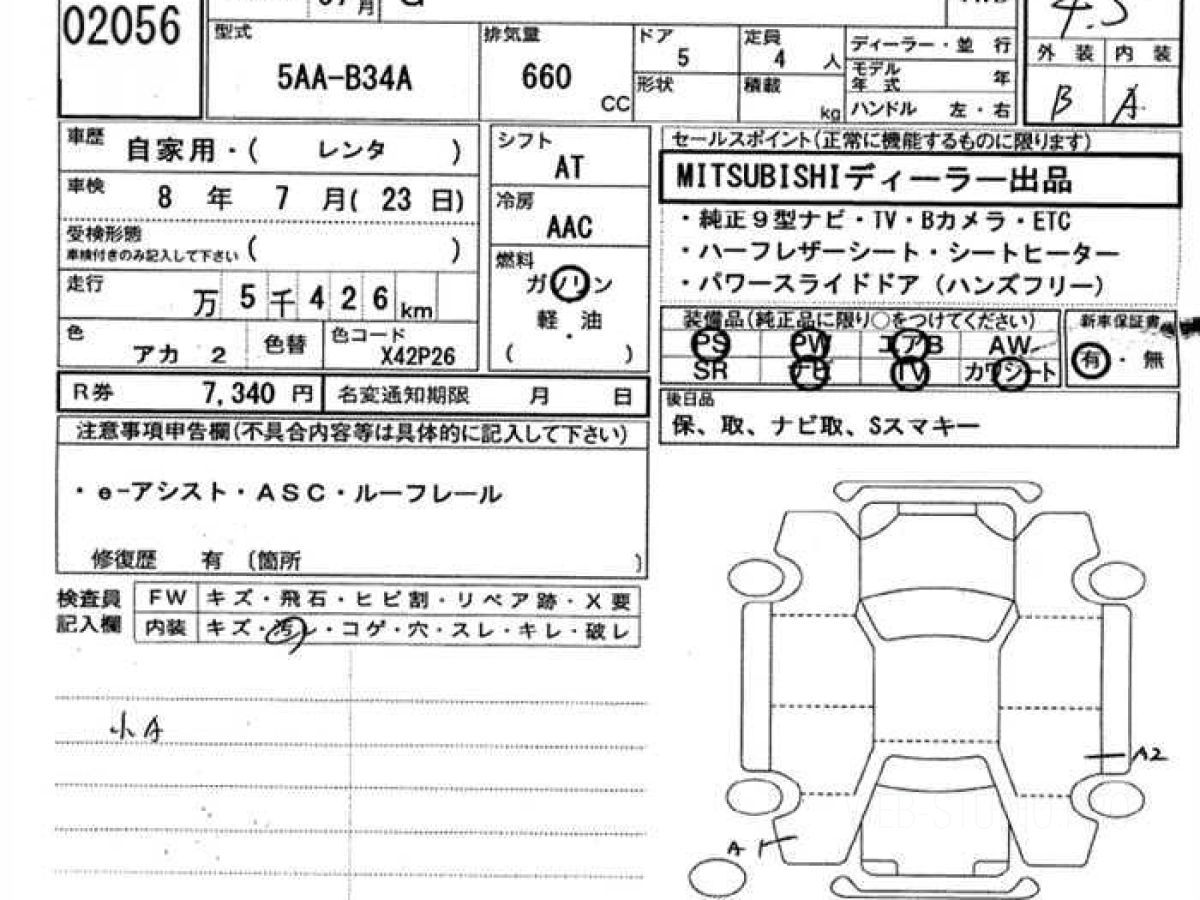 月 G
02056
4.5
型式 5AA-B34A
排気量 660 CC
ドア 5
定員 4 人
形状
積載 kg
ディーラー・並 行
モデル年式 年
ハンドル 左・右
外 装 内 装
B A
車歴 自家用・( レンタ )
車検 8 年 7 月( 23 日)
受検形態
車検付きのみ記入して下さい ( )
走行 万 5 千 4 2 6 km
色 アカ 2
色替
色コード X42P26
シフト
AT
冷房
AAC
燃料
ガソリン
軽・油
( )
セールスポイント(正常に機能するものに限ります)
MITSUBISHIディーラー出品
・純正9型ナビ・TV・Bカメラ・ETC
・ハーフレザーシート・シートヒーター
・パワースライドドア(ハンズフリー)
装備品(純正品に限り○をつけてください)
PS PW エアB AW
SR ナビ TV カワシート
新車保証書
有・無
R券 7,340 円
名変通知期限 月 日
後日品
保、取、ナビ取、Sスマキー
注意事項申告欄(不具合内容等は具体的に記入して下さい)
・e-アシスト・ASC・ルーフレール
修復歴 有 〔箇所 〕
検査員
記入欄
FW キズ・飛石・ヒビ割・リペア跡・X要
内装 キズ・汚レ・コゲ・穴・スレ・キレ・破レ
小A
A2
A1